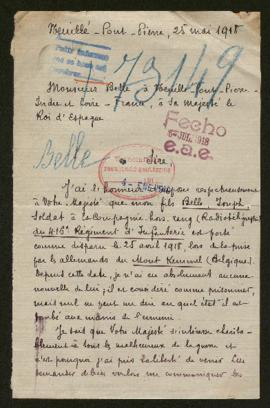 Neuillé-Pont-Pierre, 25 mai 1918
73149
Monsieur Belle à Neuillé Pont-Pierre
Indre et Loire - France, à Sa Majesté le
Roi d'Espagne
Fecho
JUL. 1918
e.a.e.
Belle
Sire,
J'ai l'honneur d'exposer respectueusement
à Votre Majesté que mon fils Belle Joseph
Soldat à la Compagnie hors rang (Radiotélégraph.)
du 416e Régiment d'Infanterie est porté
comme disparu le 25 avril 1918, lors de la prise
par les allemands du Mont Kemmel (Belgique).
Depuis cette date, je n'ai eu absolument aucune
nouvelle de lui; il est considéré comme prisonnier,
mais nul ne peut me dire en quel état il est
tombé aux mains de l'ennemi.
Je sais que Votre Majesté s'intéresse charita-
blement à tous les malheureux de la guerre et
c'est pourquoi j'ai pris la liberté de venir Lui
demander de bien vouloir me communiquer les